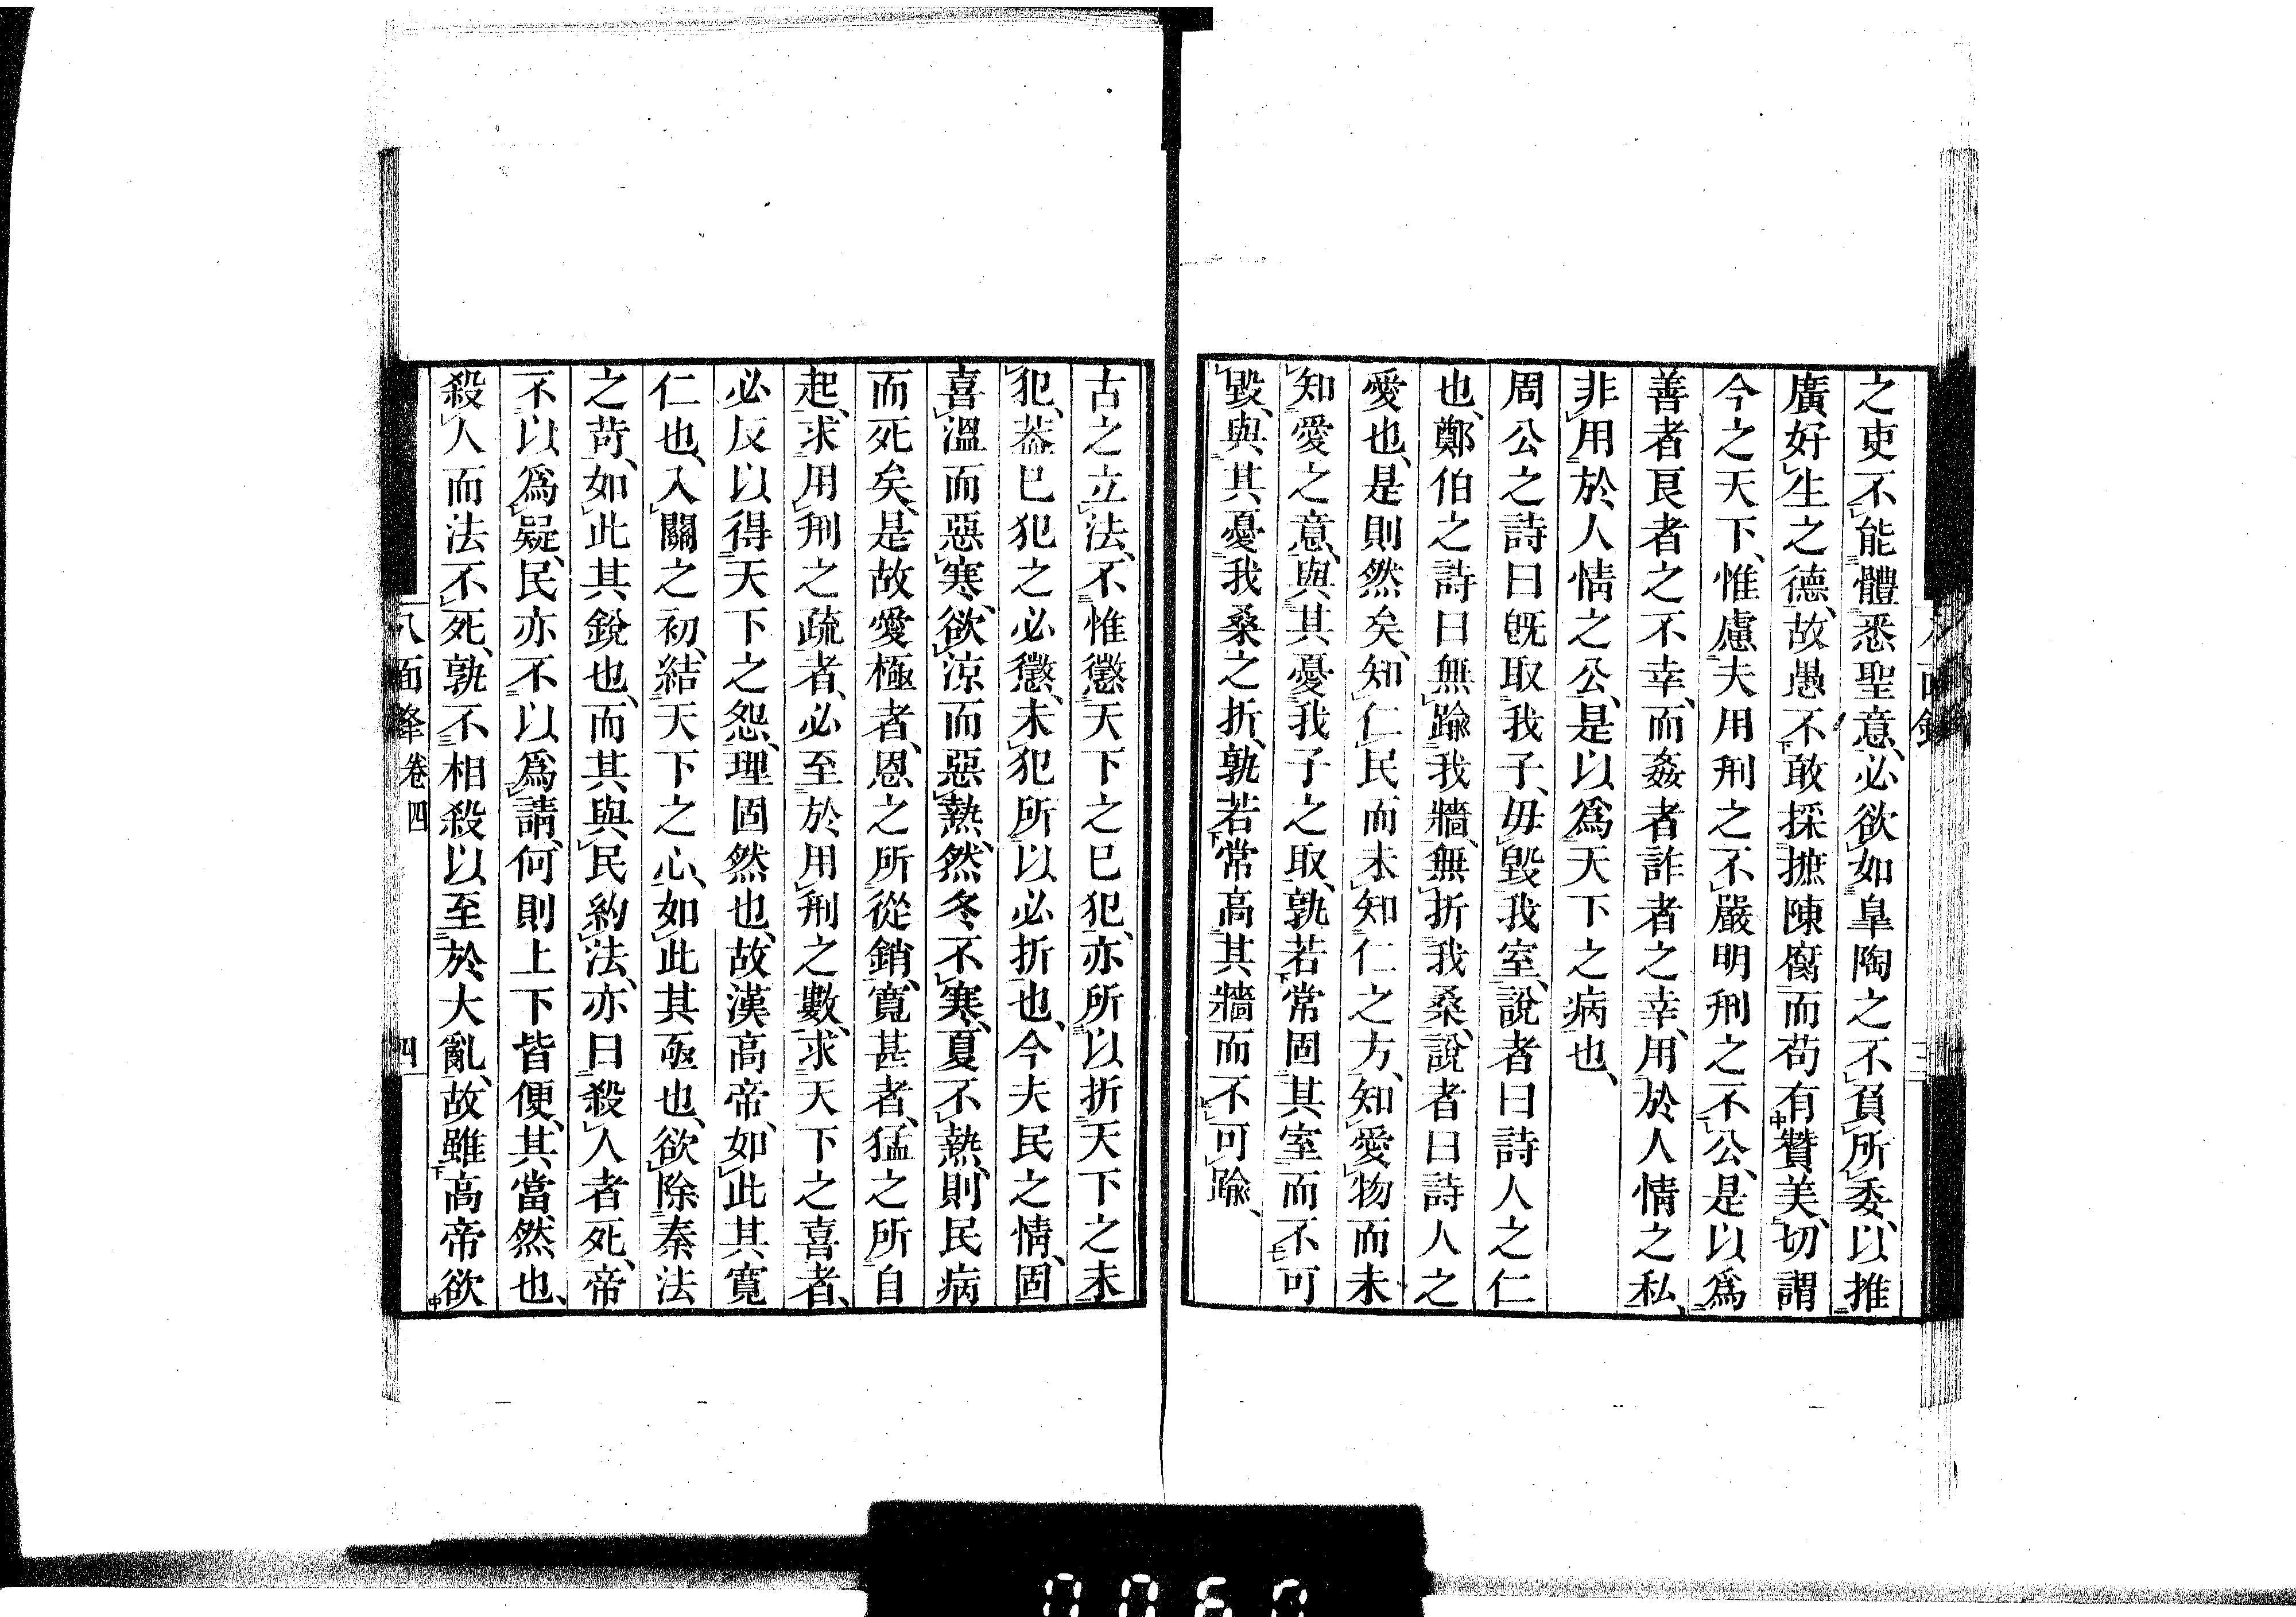 之吏不能體悉聖意、必欲如皐陶之不負所委、以推
廣好生之德、故愚不敢採摭陳腐而苟有贊美、切謂
今之天下、惟慮夫用刑之不嚴明刑之不公、是以爲
善者良者之不幸、而姦者詐者之幸、用於人情之私、
非用於人情之公、是以爲天下之病也、
周公之詩曰旣取我子、毋毀我室、說者曰詩人之仁
也、鄭伯之詩曰無踰我牆、無折我桑、說者曰詩人之
愛也、是則然矣、知仁民而未知仁之方、知愛物而未
知愛之意、與其憂我子之取、孰若常固其室而不可
毀、與其憂我桑之折、孰若常高其牆而不可踰、
古之立法、不惟懲天下之已犯、亦所以折天下之未
犯、葢已犯之必懲、未犯所以必折也、今夫民之情、固
喜溫而惡寒、欲涼而惡熱、然冬不寒、夏不熱、則民病
而死矣、是故愛極者、恩之所從銷、寬甚者、猛之所自
起、求用刑之疏者、必至於用刑之數、求天下之喜者、
必反以得天下之怨、理固然也、故漢高帝、如此其寬
仁也、入關之初、結天下之心、如此其亟也、欲除秦法
之苛、如此其銳也、而其與民約法、亦曰殺人者死、帝
不以爲疑、民亦不以爲請、何則上下皆便、其當然也、
殺人而法不死、孰不相殺以至於大亂、故雖高帝欲
八面鋒 卷四
四
0060